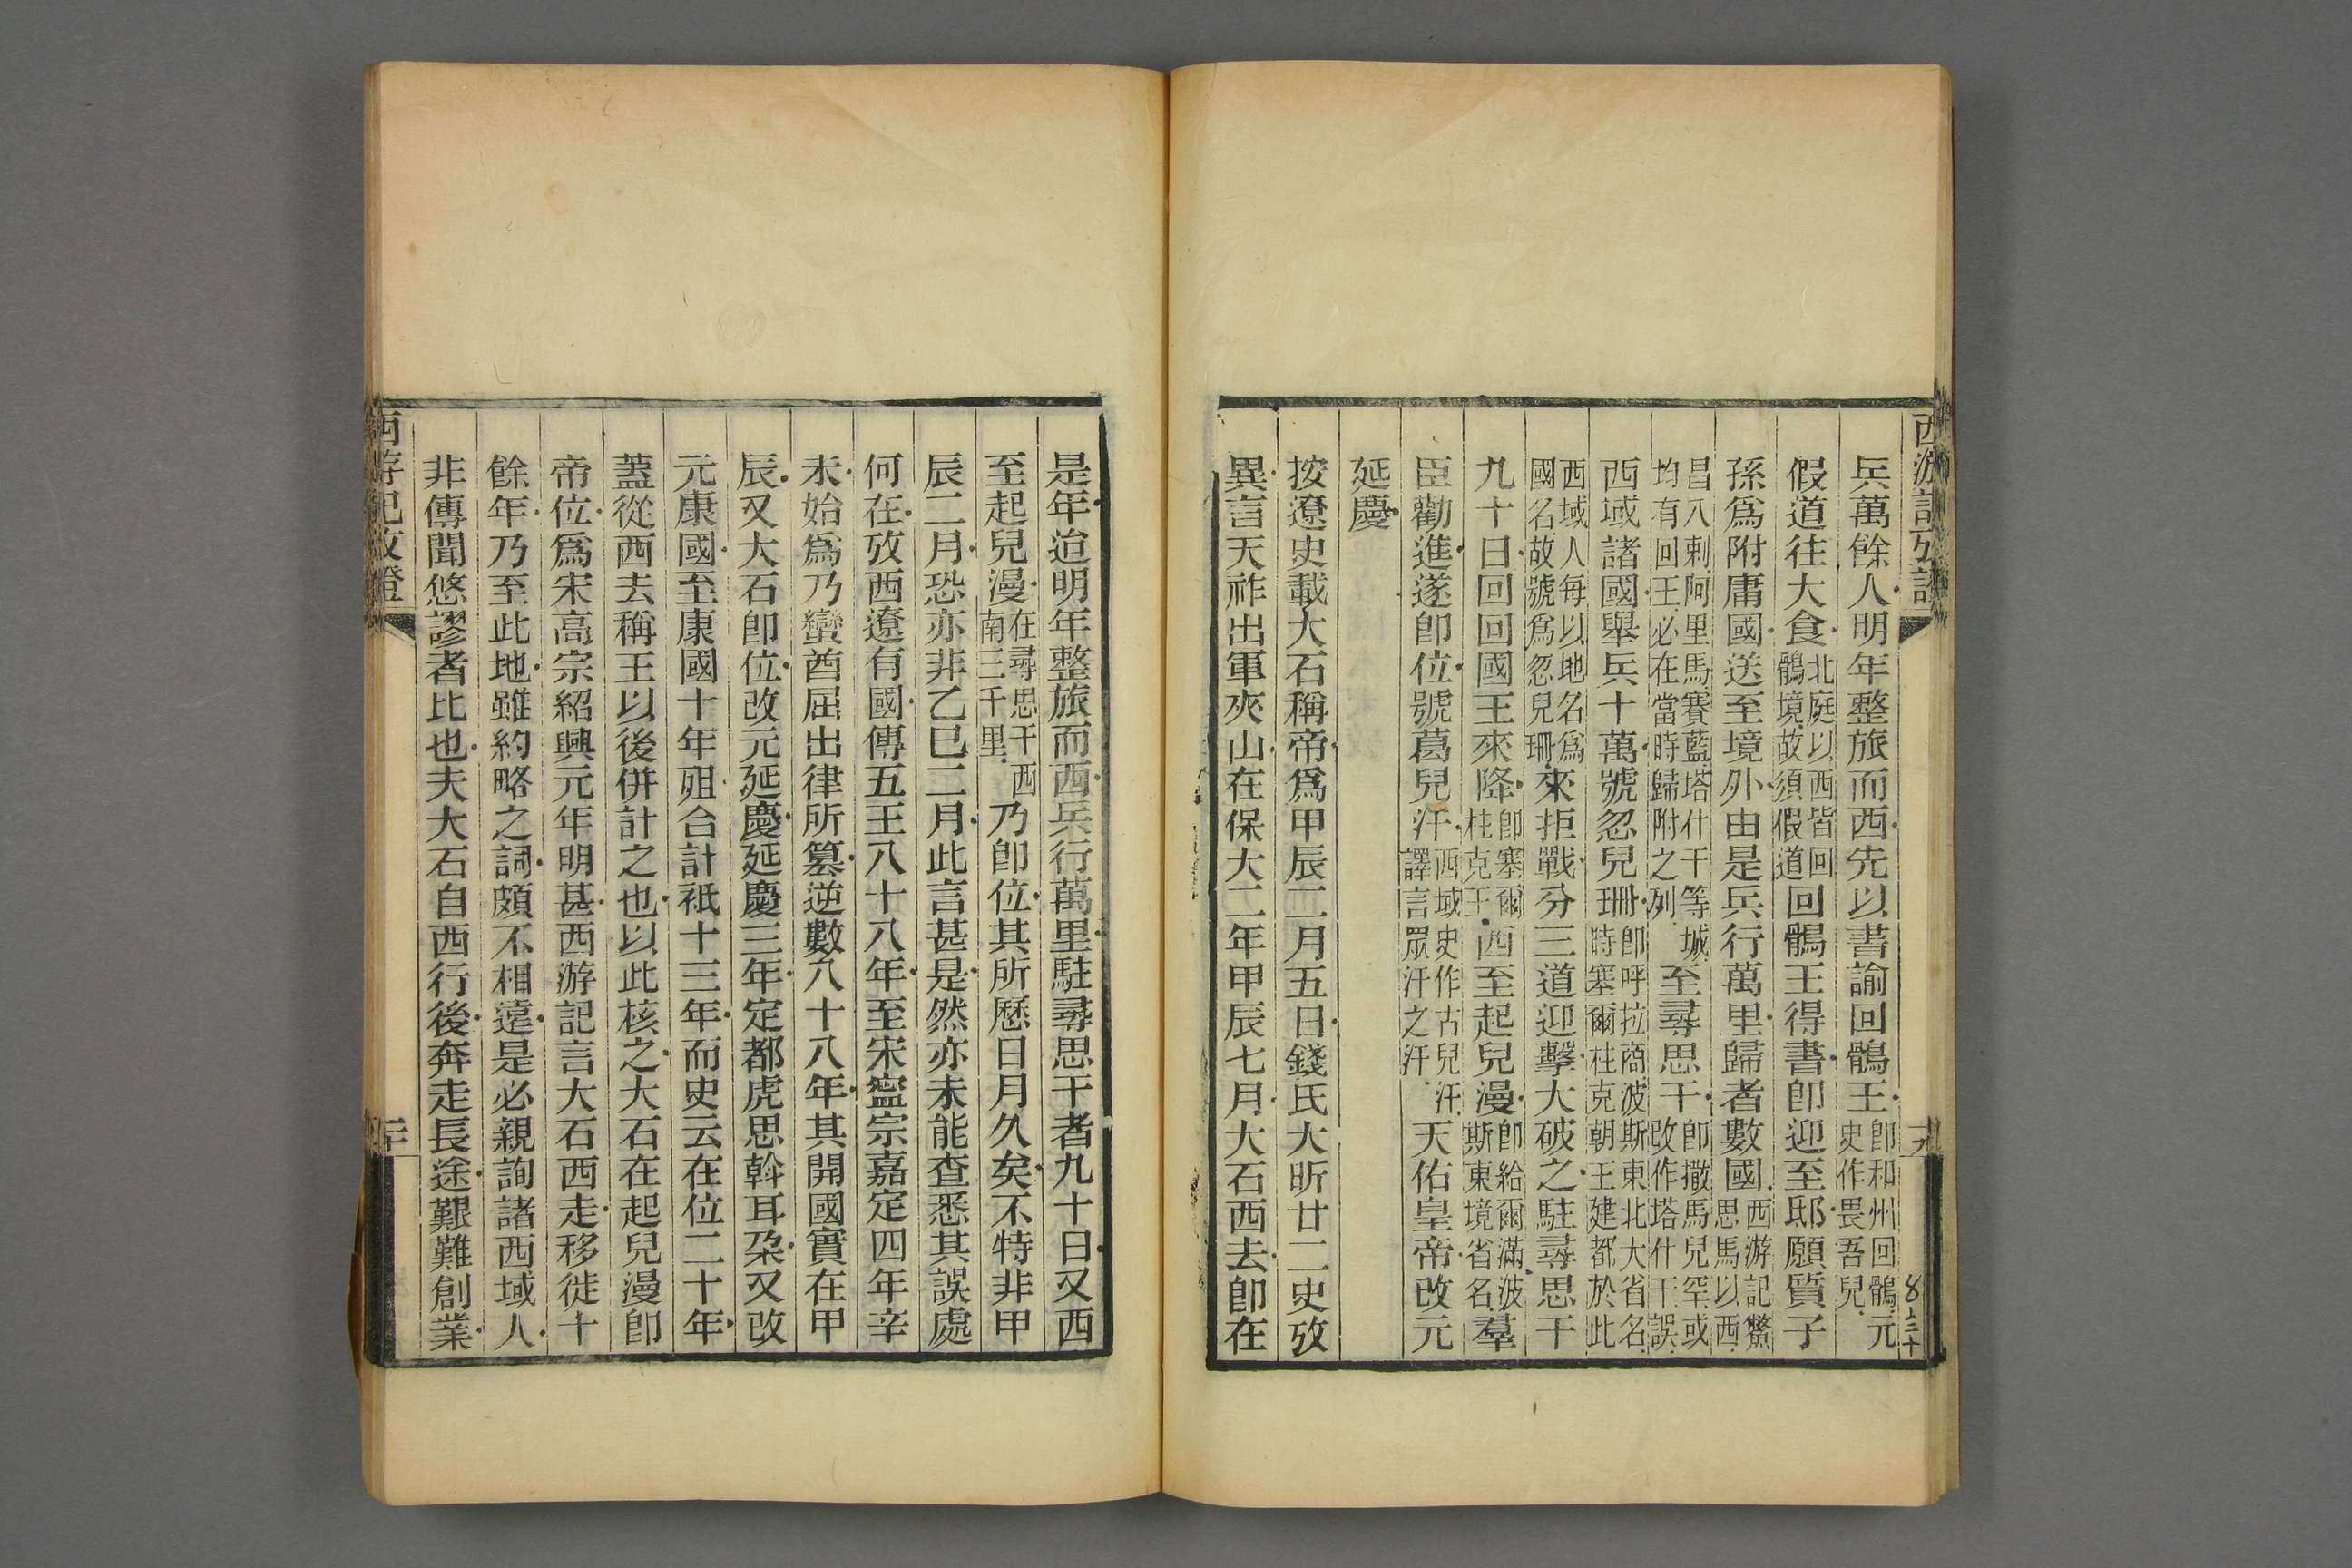 西游記攷證
兵萬餘人明年整旅而西先以書諭回鶻王卽和州回鶻元史作畏吾兒
假道往大食北庭以西皆回鶻境故須假道回鶻王得書卽迎至邸願質子
孫爲附庸國送至境外由是兵行萬里歸者數國西游記鱉思馬以西
昌八剌阿里馬賽藍塔什干等城均有回王必在當時歸附之列至尋思干卽撒馬兒罕或改作塔什干誤
西域諸國舉兵十萬號忽兒珊卽呼拉商波斯東北大省名時塞爾柱克朝王建都於此
西域人每以地名爲國名故號爲忽兒珊來拒戰分三道迎擊大破之駐尋思干
九十日回回國王來降卽塞爾柱克王西至起兒漫卽給爾滿波斯東境省名羣
臣勸進遂卽位號葛兒汗西域史作古兒汗譯言眾汗之汗天佑皇帝改元
延慶
按遼史載大石稱帝爲甲辰二月五日錢氏大昕廿二史攷
異言天祚出軍夾山在保大二年甲辰七月大石西去卽在
十九
是年迨明年整旅而西兵行萬里駐尋思干者九十日又西
至起兒漫在尋思干西南三千里乃卽位其所歷日月久矣不特非甲
辰二月恐亦非乙巳二月此言甚是然亦未能查悉其誤處
何在攷西遼有國傳五王八十八年至宋寧宗嘉定四年辛
未始爲乃蠻酋屈出律所篡逆數八十八年其開國實在甲
辰又大石卽位改元延慶延慶三年定都虎思斡耳朶又改
元康國至康國十年殂合計祇十三年而史云在位二十年
蓋從西去稱王以後併計之也以此核之大石在起兒漫卽
帝位爲宋高宗紹興元年明甚西游記言大石西走移徙十
餘年乃至此地雖約略之詞頗不相遠是必親詢諸西域人
非傳聞悠謬者比也夫大石自西行後奔走長途艱難創業
西游記攷證
二十